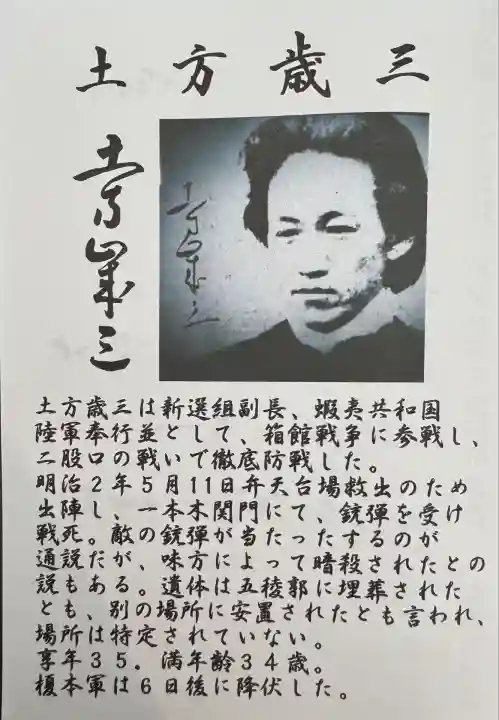 土方歳三
土方歳三
土方歳三
土方歳三は新選組副長、蝦夷共和国
陸軍奉行並として、箱館戦争に参戦し、
二股口の戦いで徹底防戦した。
明治２年５月１１日弁天台場救出のため
出陣し、一本木関門にて、銃弾を受け
戦死。敵の銃弾が当たったするのが
通説だが、味方によって暗殺されたとの
説もある。遺体は五稜郭に埋葬された
とも、別の場所に安置されたとも言われ、
場所は特定されていない。
享年３５．満年齢３４歳。
榎本軍は６日後に降伏した。